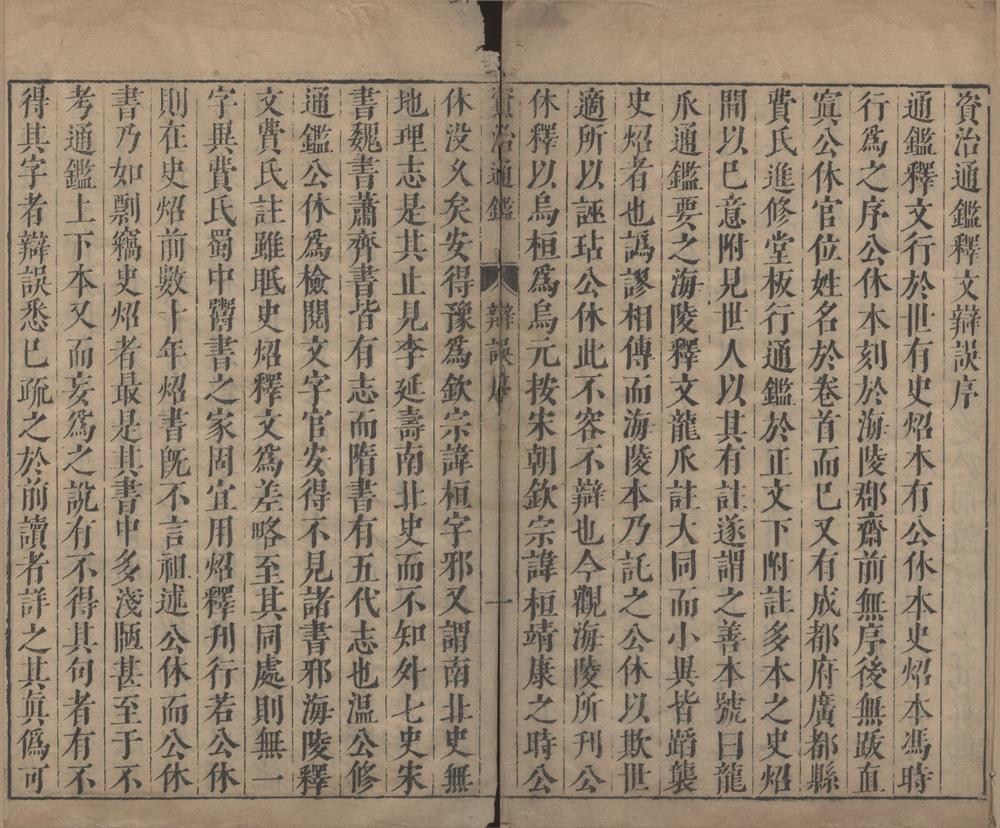 資治通鑑釋文辯誤序
通鑑釋文行於世有史炤本有公休本史炤本馮時
行爲之序公休本刻於海陵郡齋前無序後無跋直
寘公休官位姓名於卷首而已又有成都府廣都縣
費氏進修堂板行通鑑於正文下附註多本之史炤
間以己意附見世人以其有註遂謂之善本號曰龍
爪通鑑要之海陵釋文龍爪註大同而小異皆蹈襲
史炤者也譌謬相傳而海陵本乃託之公休以欺世
適所以誣玷公休此不容不辯也今觀海陵所刊公
休釋以烏桓爲烏元按宋朝欽宗諱桓靖康之時公
資治通鑑 辯誤序 一
休没乆矣安得豫爲欽宗諱桓字邪又謂南北史無
地理志是其止見李延壽南北史而不知外七史宋
書魏書蕭齊書皆有志而隋書有五代志也温公修
通鑑公休爲檢閱文字官安得不見諸書邪海陵釋
文費氏註雖眡史炤釋文爲差略至其同處則無一
字異費氏蜀中鬻書之家固宜用炤釋刊行若公休
則在史炤前數十年炤書旣不言祖述公休而公休
書乃如剽竊史炤者最是其書中多淺陋甚至于不
考通鑑上下本文而妄爲之說有不得其句者有不
得其字者辯誤悉已疏之於前讀者詳之其眞僞可